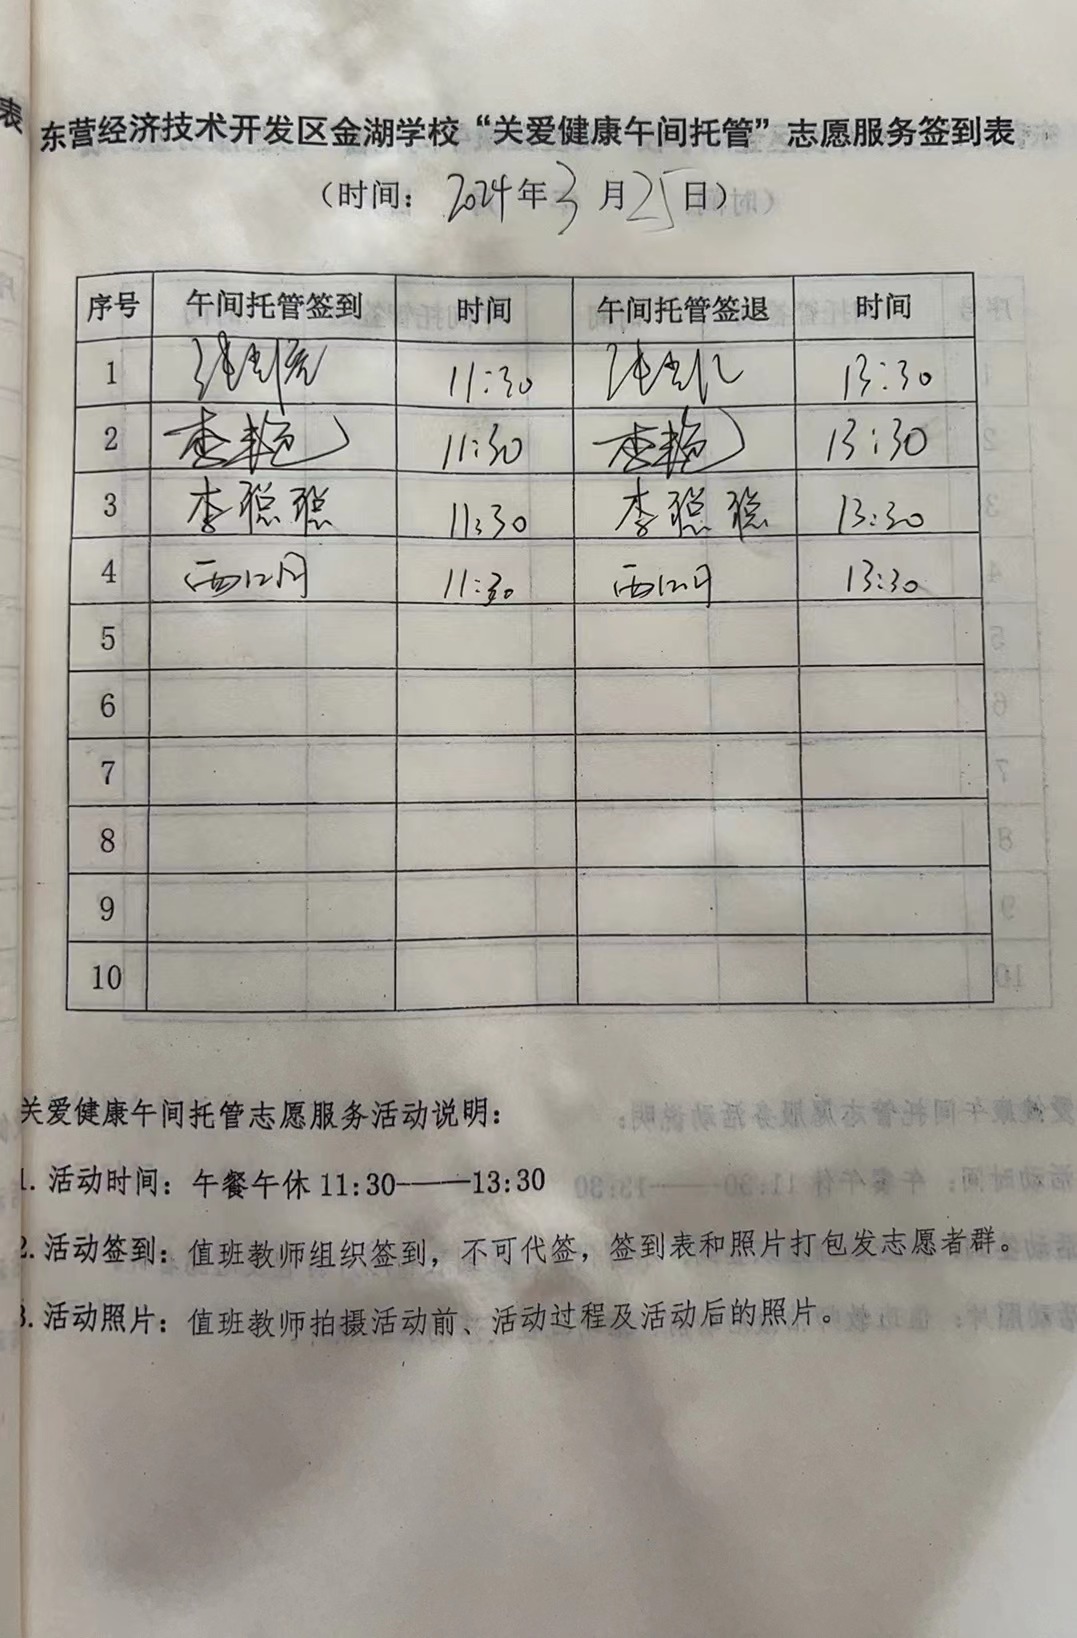 东营经济技术开发区金湖学校“关爱健康午间托管”志愿服务签到表
（时间：2024年3月25日）
序号 午间托管签到 时间 午间托管签退 时间
1 11:30 13:30
2 李艳 11:30 李艳 13:30
3 李聪聪 11:30 李聪聪 13:30
4 11:30 13:30
5
6
7
8
9
10
关爱健康午间托管志愿服务活动说明：
1. 活动时间：午餐午休 11:30——13:30
2. 活动签到：值班教师组织签到，不可代签，签到表和照片打包发志愿者群。
3. 活动照片：值班教师拍摄活动前、活动过程及活动后的照片。